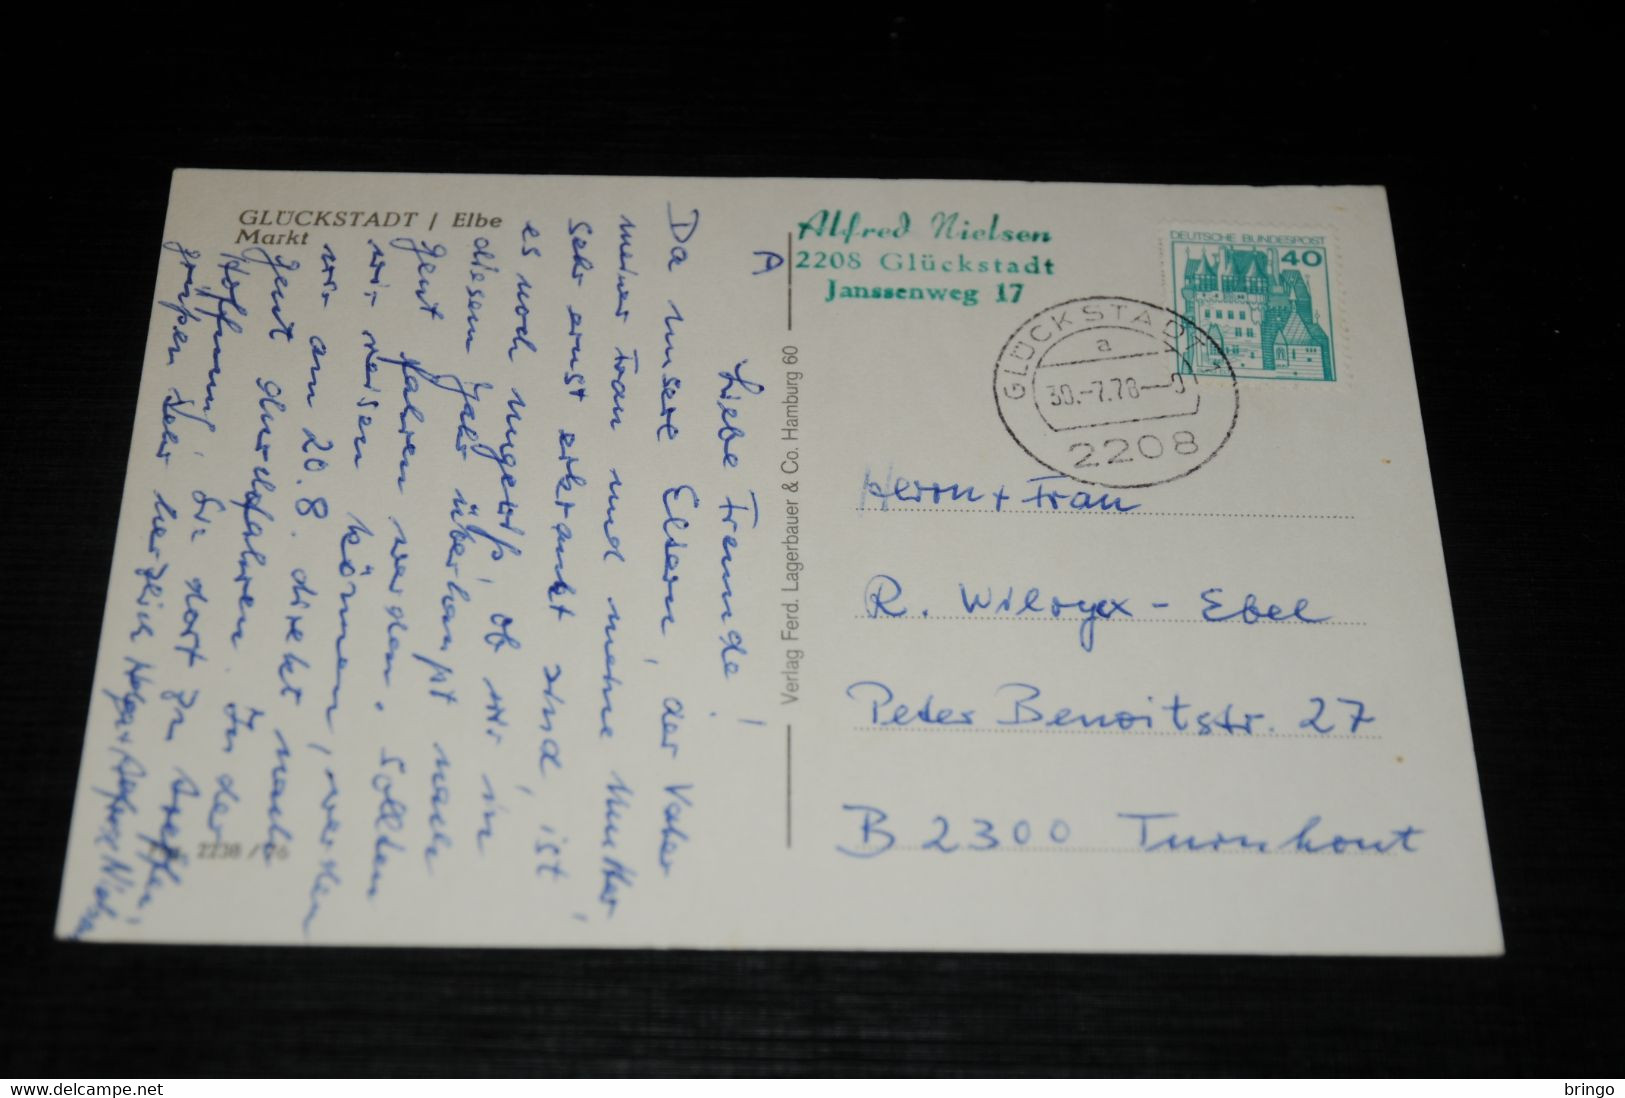 GLÜCKSTADT / Elbe
Markt
A
Liebe Freunde!
Da unsere Eltern, der Vater
meiner Frau und meine Mutter,
sehr ernst erkrankt sind, ist
es noch ungewiß, ob wir in
diesem Jahr überhaupt nach
Gent fahren werden. Sollten
wir reisen können, werden
wir am 20.8. direkt nach
Gent durchfahren. In der
Hoffnung, Sie dort zu treffen,
grüßen sehr herzlich Helga + Alfred Nielsen
2238 / 76
Verlag Ferd. Lagerbauer & Co. Hamburg 60
Alfred Nielsen
2208 Glückstadt
Janssenweg 17
DEUTSCHE BUNDESPOST
40
GLÜCKSTADT 1
a
30.-7.78
2208
Herrn + Frau
R. - Ebel
Peter Benoitstr. 27
B 2300 Turnhout
bringo